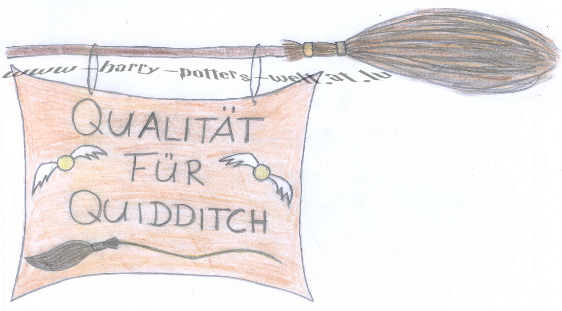 www-harry-potters-welt.at.lu
QUALITÄT
FÜR
QUIDDITCH